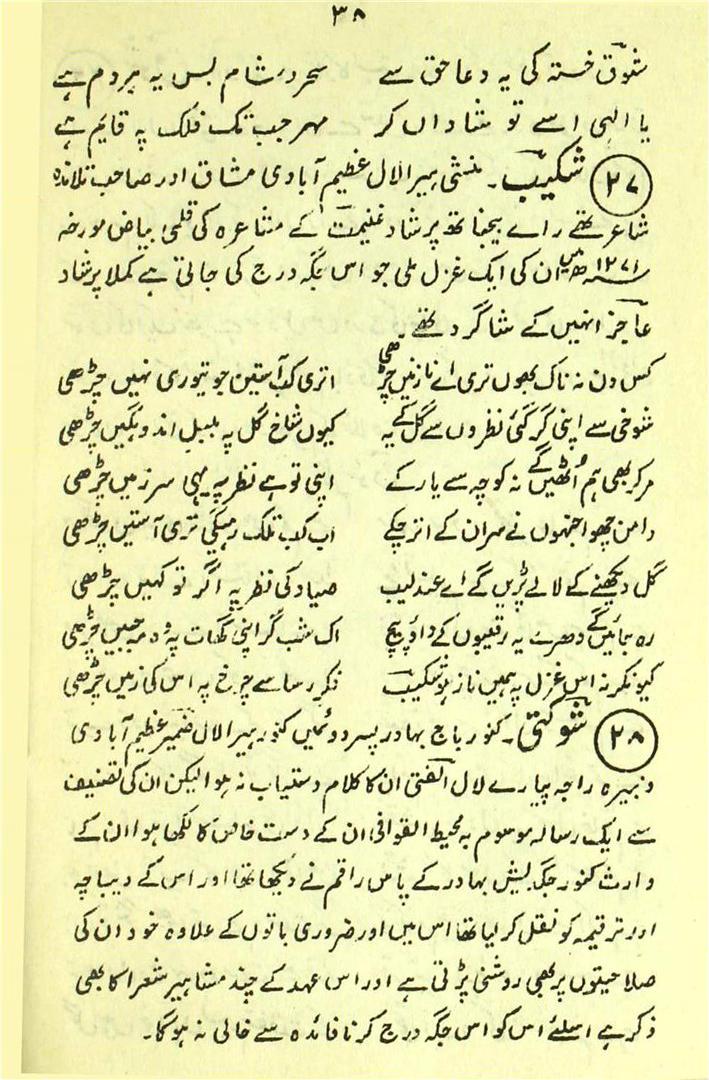 ۳۸
شوق خستہ کی یہ دعا حق سے سحر در شام بس یہ ہر دم ہے
یا الہٰی اسے تو شاداں کر مہر جب تک فلک پہ قایم ہے
۲۷ شکیب۔ منشی ہیرا لال عظیم آبادی مشاق اور صاحب تلاندہ
شاعر تھے راے بیجنا تھ پرشاد غنیمت کے مشاعرہ کی قلمی بیاض مورخہ
۱۲۷۱ھ میں ان کی ایک غزل ملی جو اس جگہ درج کی جاتی ہے کملا پرشاد
عاجز انہیں کے شاگرد تھے۔
کس دن نہ ناک بھوں تری اے نازنیں چڑھی اتری کب آستین جو تیوری نہیں چڑھی
شوخی سے اپنی گر گئی نظروں سے گل کے یہ کیوں شاخ گل پہ بلبل اندوہگیں چڑھی
مرکر بھی ہم اُٹھیں گے نہ کوچہ سے یار کے اپنی تو ہے نظر پہ یہی سر زمیں چڑھی
دامن چھوا جنہوں نے سر ان کے اتر چکے اب کب تلک رہیگی تری آستیں چڑھی
گل دیکھنے کے لالے پڑیں گے اے عندلیب صیاد کی نظر پہ اگر تو کہیں چڑھی
رہ جائیں گے دھرے یہ رقیبوں کے داؤ پیچ اک شب گر اپنی گھات پہ وہ مہ جبیں چڑھی
کیونکر نہ اس غزل پہ ہمیں ناز ہو شکیب فکر رسا سے چرخ پہ اس کی زمیں چڑھی
۲۸ شوکتی۔ کنور باج بہادر پسر دوئمیں کنور ہیرا لال ضمیر عظیم آبادی
و نبیرہ راجہ پیارے لال الفتی ان کا کلام دستیاب نہ ہوا لیکن ان کی تصنیف
سے ایک رسالہ موسوم بہ محیط القوافی ان کے دست خاص کا لکھا ہوا ان کے
وارث کنور جگدیش بہادر کے پاس راقم نے دیکھا تھا اور اس کے دیباچہ
اور ترقیمہ کو نقل کر لیا تھا اس میں اور ضروری باتوں کے علاوہ خود ان کی
صلاحیتوں پر بھی روشنی پڑتی ہے اور اس عہد کے چند مشاہیر شعرا کا بھی
ذکر ہے اسلئے اس کو اس جگہ درج کرنا فائدہ سے خالی نہ ہوگا۔